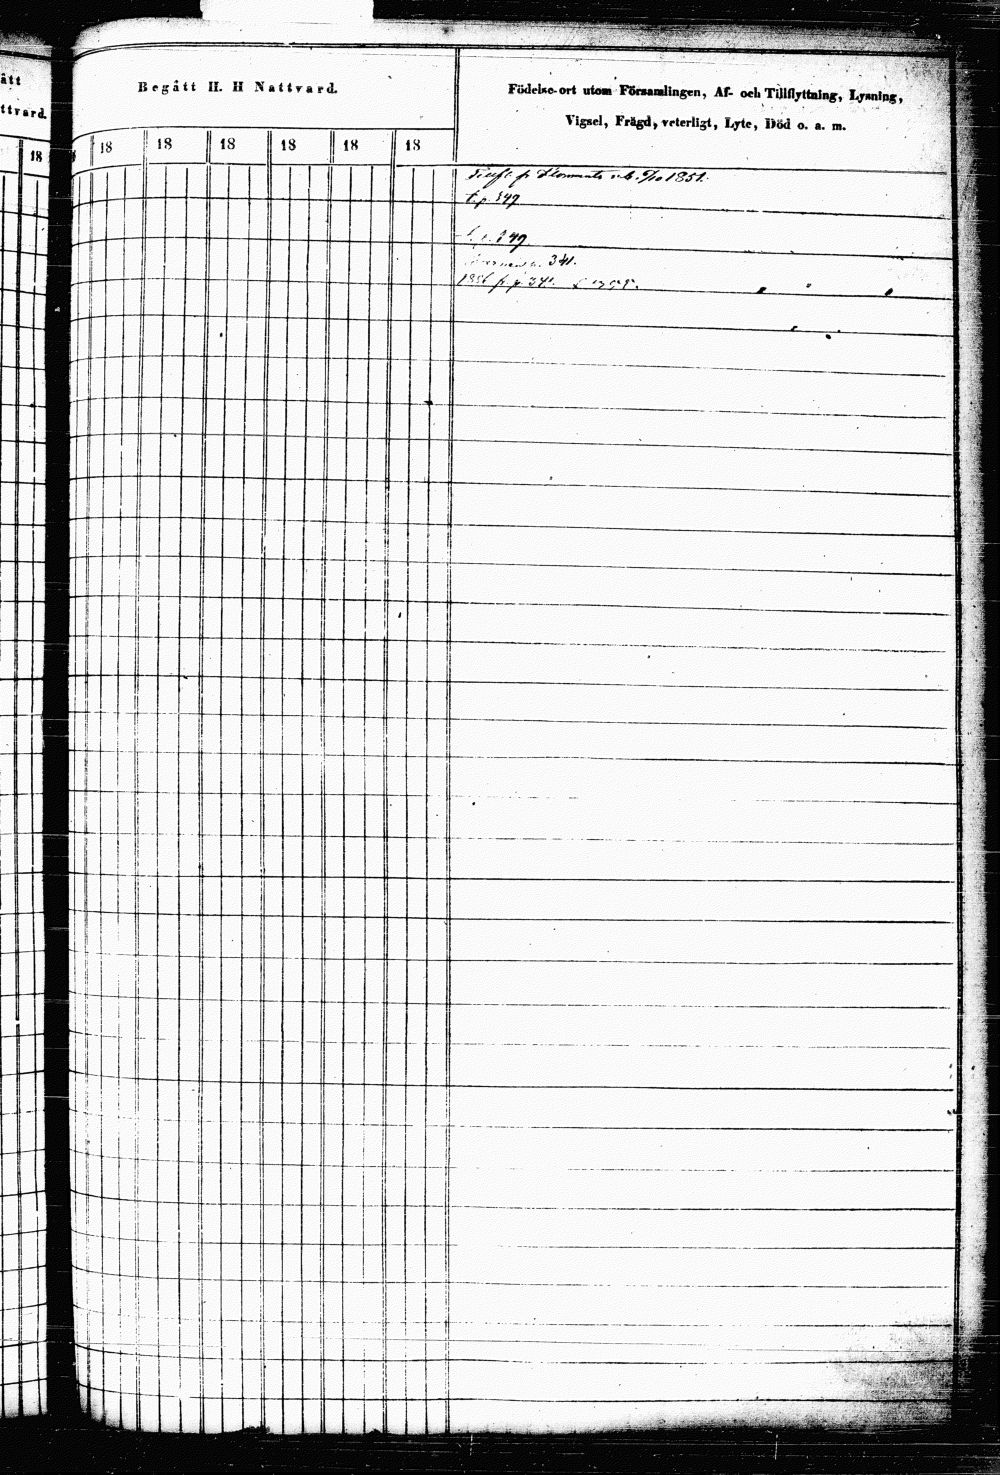 ått
ttvard.
18
Begått H. H Nattvard.
18 18 18 18 18 18
Födelse-ort utom Församlingen, Af- och Tillflyttning, Lysning,
Vigsel, Frägd, veterligt, Lyte, Död o. a. m.
1851.
349
349
341.
1856 fr. p. 341.